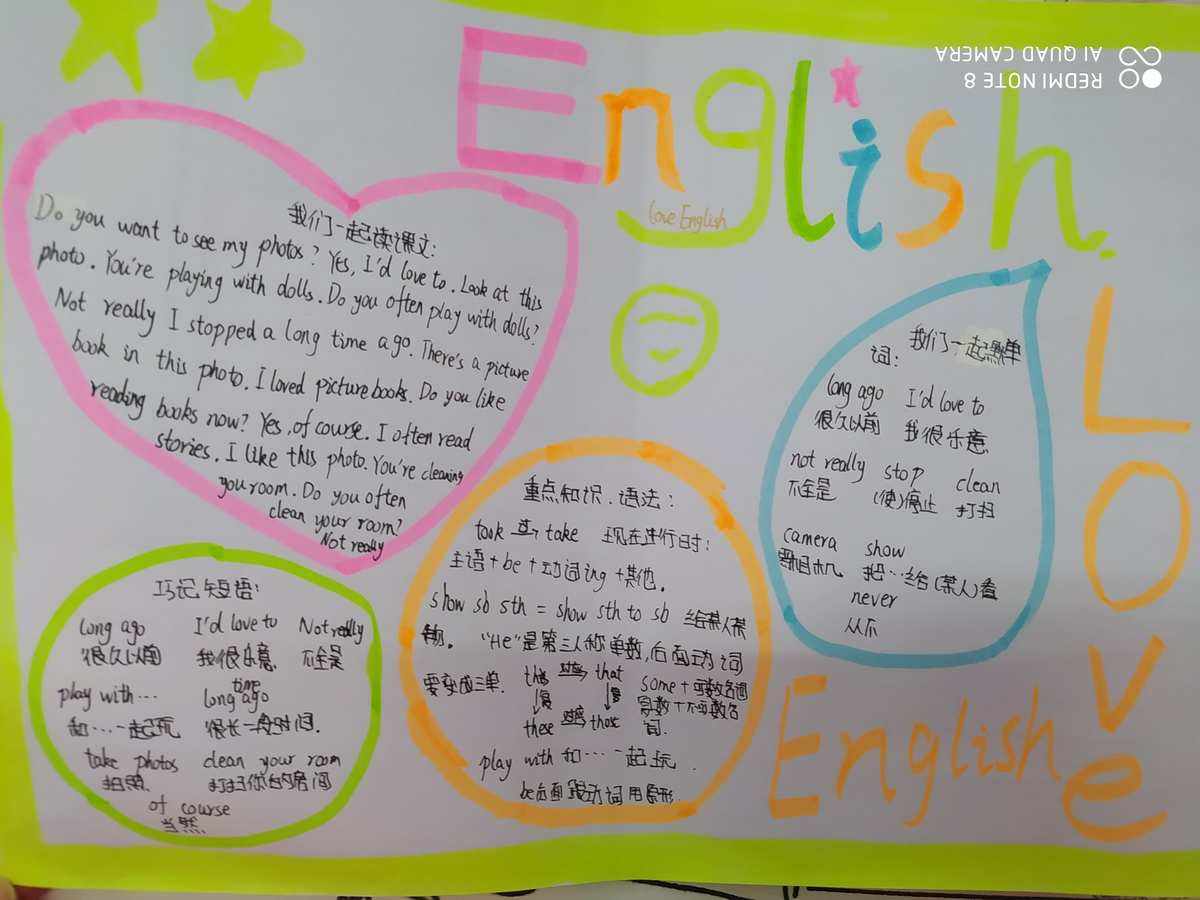 English
love English
REDMI NOTE 8
AI QUAD CAMERA
我们一起读课文:
Do you want to see my photos? Yes, I'd love to. Look at this
photo. You're playing with dolls. Do you often play with dolls?
Not really I stopped a long time ago. There's a picture
book in this photo. I loved picture books. Do you like
reading books now? Yes, of course. I often read
stories. I like this photo. You're cleaning
you room. Do you often
clean your room?
Not really
我们一起熟单
词:
long ago I'd love to
很久以前 我很乐意
not really stop clean
不全是 (使)停止 打扫
camera show
照相机 把…给(某人)看
never
从不
重点知识、语法:
took take 现在进行时:
主语+be+动词ing+其他。
show sb sth = show sth to sb 给某人某
物。"He"是第三人称单数,后面动词
要变成三单.
this that
these those
some+可数名词
复数+不可数名
词.
play with 和…一起玩.
be后面跟动词用原形.
巧记短语:
long ago I'd love to Not really
很久以前 我很乐意. 不全是
play with… long time ago
和…一起玩 很长一段时间.
take photos clean your room
拍照. 打扫你的房间
of course
当然
Love
English